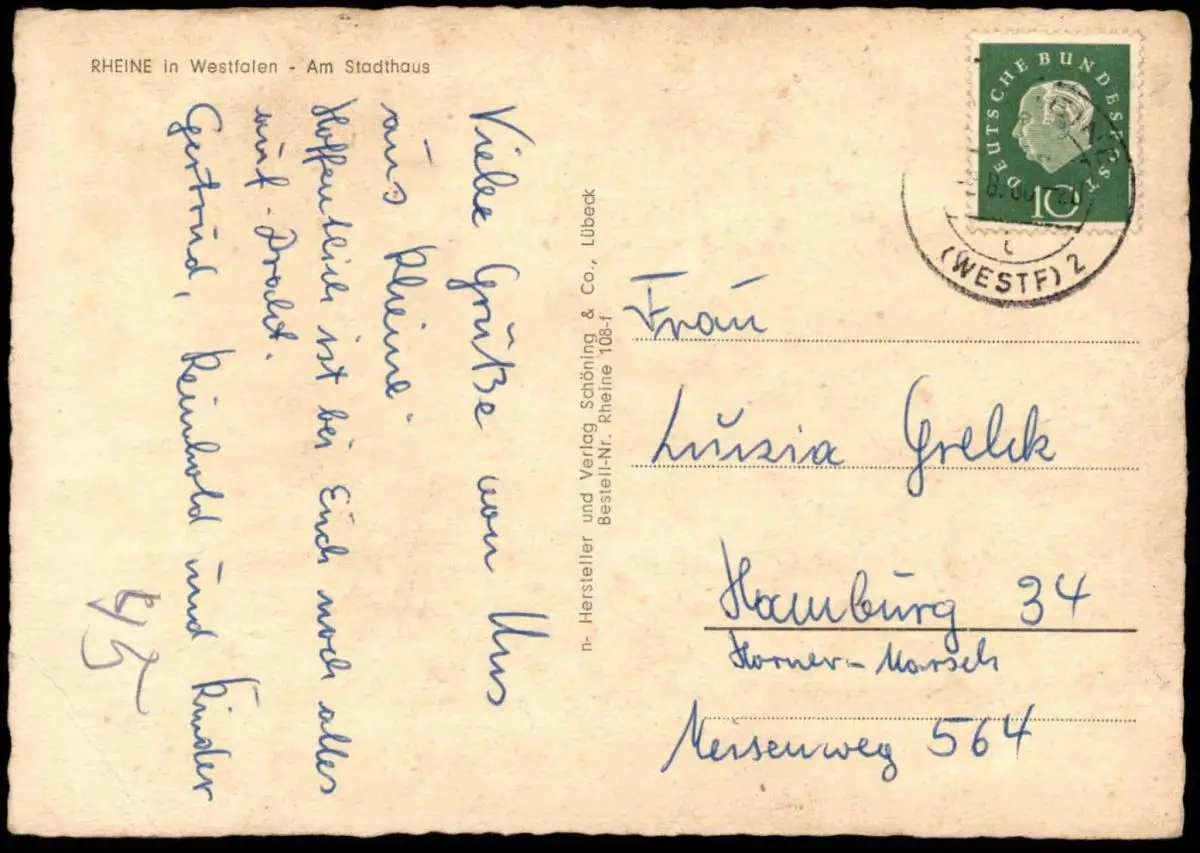 RHEINE in Westfalen - Am Stadthaus
Viele Grüße von Uns
aus Rheine
Hoffentlich ist bei Euch noch alles
auf Draht.
Gertrud, Reinhold und Kinder
n- Hersteller und Verlag Schöning & Co., Lübeck
Bestell-Nr. Rheine 108-f
DEUTSCHE BUNDESPOST
10
(WESTF) 2
c
Frau
Luzia Grelck
Hamburg 34
Horner-Marsch
Meisenweg 564